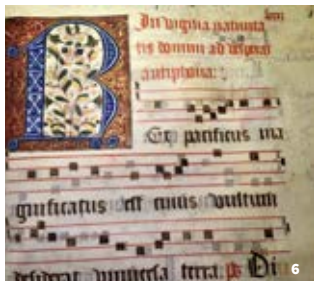 In vigilia natiuita
tis domini ad vesperas
antiphona:
R Ex pacificus ma
gnificatus est cuius vultum
desiderat vniuersa terra. ps Di
6